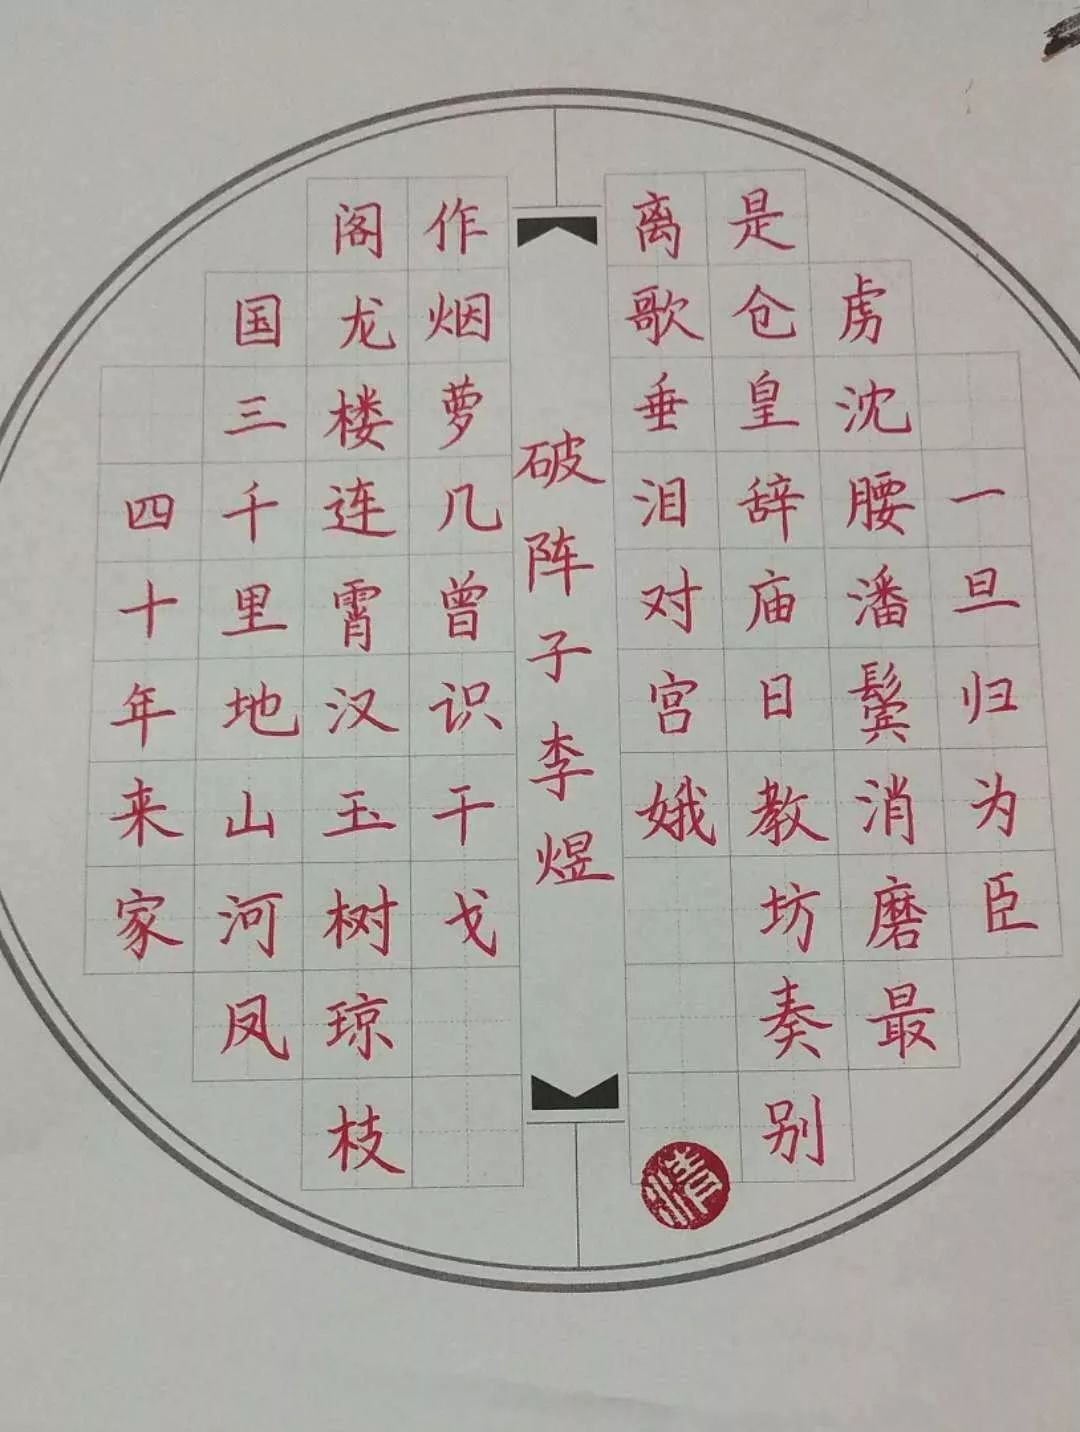 破阵子李煜
四十年来家
国三千里地山河凤
阁龙楼连霄汉玉树琼枝
作烟萝几曾识干戈
一旦归为臣
虏沈腰潘鬓消磨最
是仓皇辞庙日教坊奏别
离歌垂泪对宫娥